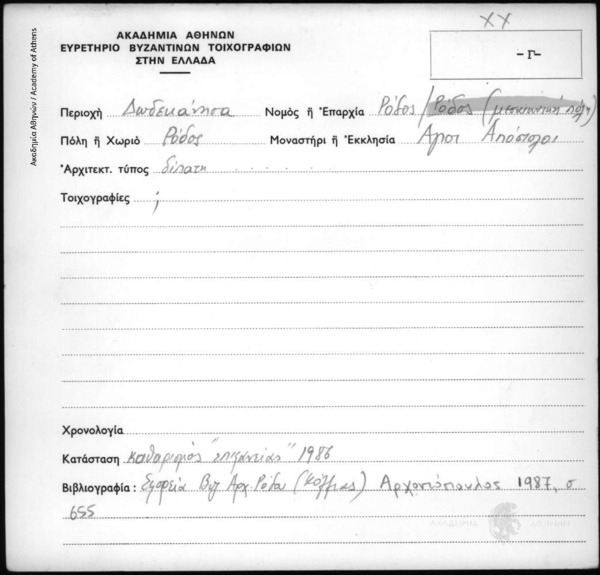 XX
ΑΚΑΔΗΜΙΑ ΑΘΗΝΩΝ
ΕΥΡΕΤΗΡΙΟ ΒΥΖΑΝΤΙΝΩΝ ΤΟΙΧΟΓΡΑΦΙΩΝ
ΣΤΗΝ ΕΛΛΑΔΑ
-Γ-
Ακαδημία Αθηνών / Academy of Athens
Περιοχὴ Δωδεκάνησα Νομὸς ἢ Ἐπαρχία Ρόδος / Ρόδος (μεσαιωνική πόλη)
Πόλη ἢ Χωριὸ Ρόδος Μοναστήρι ἢ Ἐκκλησία Άγιοι Απόστολοι
Ἀρχιτεκτ. τύπος δίπατη
Τοιχογραφίες ;
Χρονολογία
Κατάσταση καθαρισμός "επιφανείας" 1986
Βιβλιογραφία : Εφορεία Βυζ Αρχ. Ρόδου (Κόλλιας) Αρχοντόπουλος 1987, σ
655
ΑΚΑΔΗΜΙΑ ΑΘΗΝΩΝ